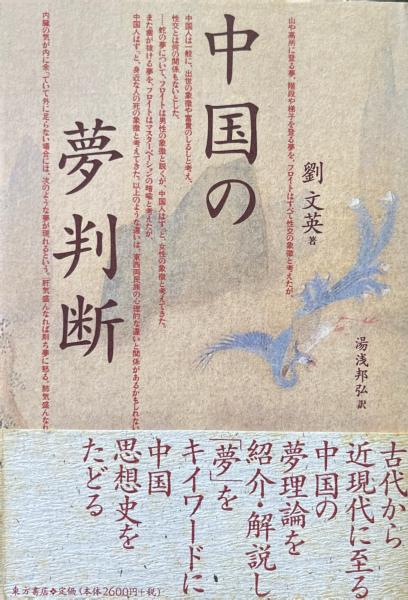 中国の
夢判断
山や高所に登る夢、階段や梯子を登る夢を、フロイトはすべて性交の象徴と考えたが、
中国人は一般に、出世の象徴や富貴のしるしと考え、
性交とは何の関係もないとした。
劉文英著
――蛇の夢について、フロイトは男性の象徴と説くが、中国人はずっと、女性の象徴と考えてきた。
また歯が抜ける夢を、フロイトはマスターベーションの暗喩と考えたが、
中国人はずっと、身近な人の死の象徴と考えてきた。以上のような違いは、東西両民族の心理的な違いと関係があるかもしれない
内臓の気が内に余っていて外に足らない場合には、次のような夢が現れるという。肝気盛んなれば則ち夢に怒る。肺気盛んなれ
湯浅邦弘訳
古代から
近現代に至る
中国の
夢理論を
紹介・解説し
「夢」を
キイワードに
中国
思想史を
たどる
東方書店❖定価(本体2600円+税)